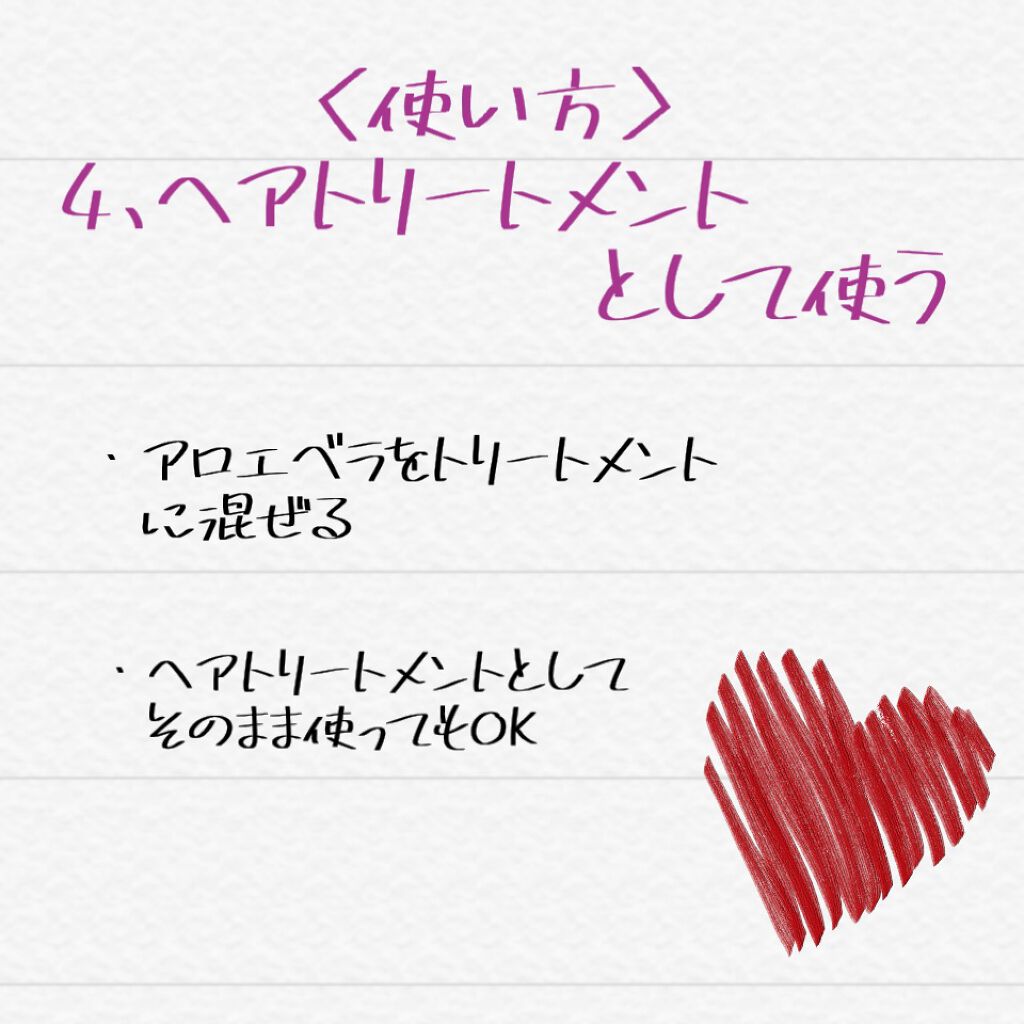 〈使い方〉
4、ヘアトリートメント
として使う
・アロエベラをトリートメント
に混ぜる
・ヘアトリートメントとして
そのまま使ってもOK